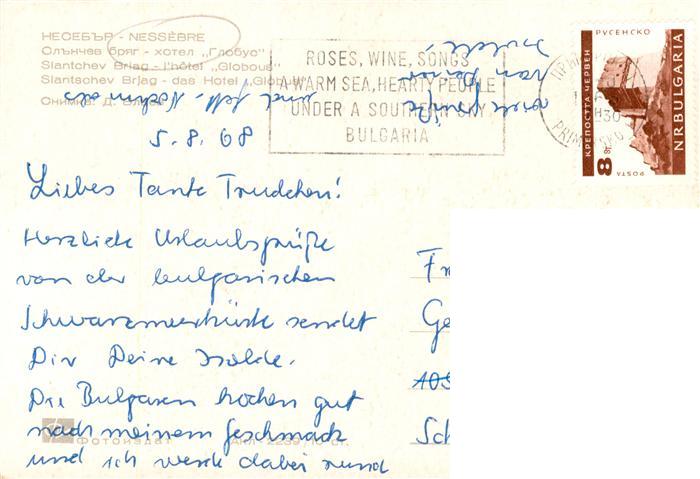 НЕСЕБЪР - NESSÈBRE
Слънчев бряг - хотел „Глобус"
Slantchev Briag - l'hôtel „Globous"
Slantschev Brjag - das Hotel „Globus"
Снимка: Д.
ROSES, WINE, SONGS
A WARM SEA, HEARTY PEOPLE
UNDER A SOUTHERN SKY
BULGARIA
РУСЕНСКО
КРЕПОСТТА ЧЕРВЕН
NRBULGARIA
POSTA
8 ст
5.8.68
Liebes Tante Trudchen!
Herzliche Urlaubsgrüße
von der bulgarischen
Schwarzmeerküste sendet
Dir Deine Isolde.
Die Bulgaren kochen gut
nach meinem Geschmack
und ich werde dabei rund
und fett. Nochmals
viele Grüße
von Deiner
Isolde
Fr
Ge
Sch
ФОТОИЗДАТ